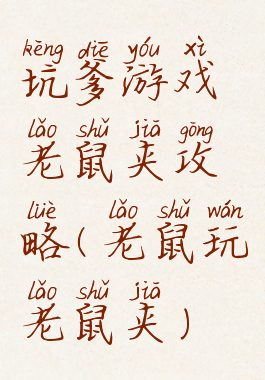 kēng diē yóu xì
坑爹游戏
lǎo shǔ jiā gōng
老鼠夹攻
lüè lǎo shǔ wán
略(老鼠玩
lǎo shǔ jiā
老鼠夹)